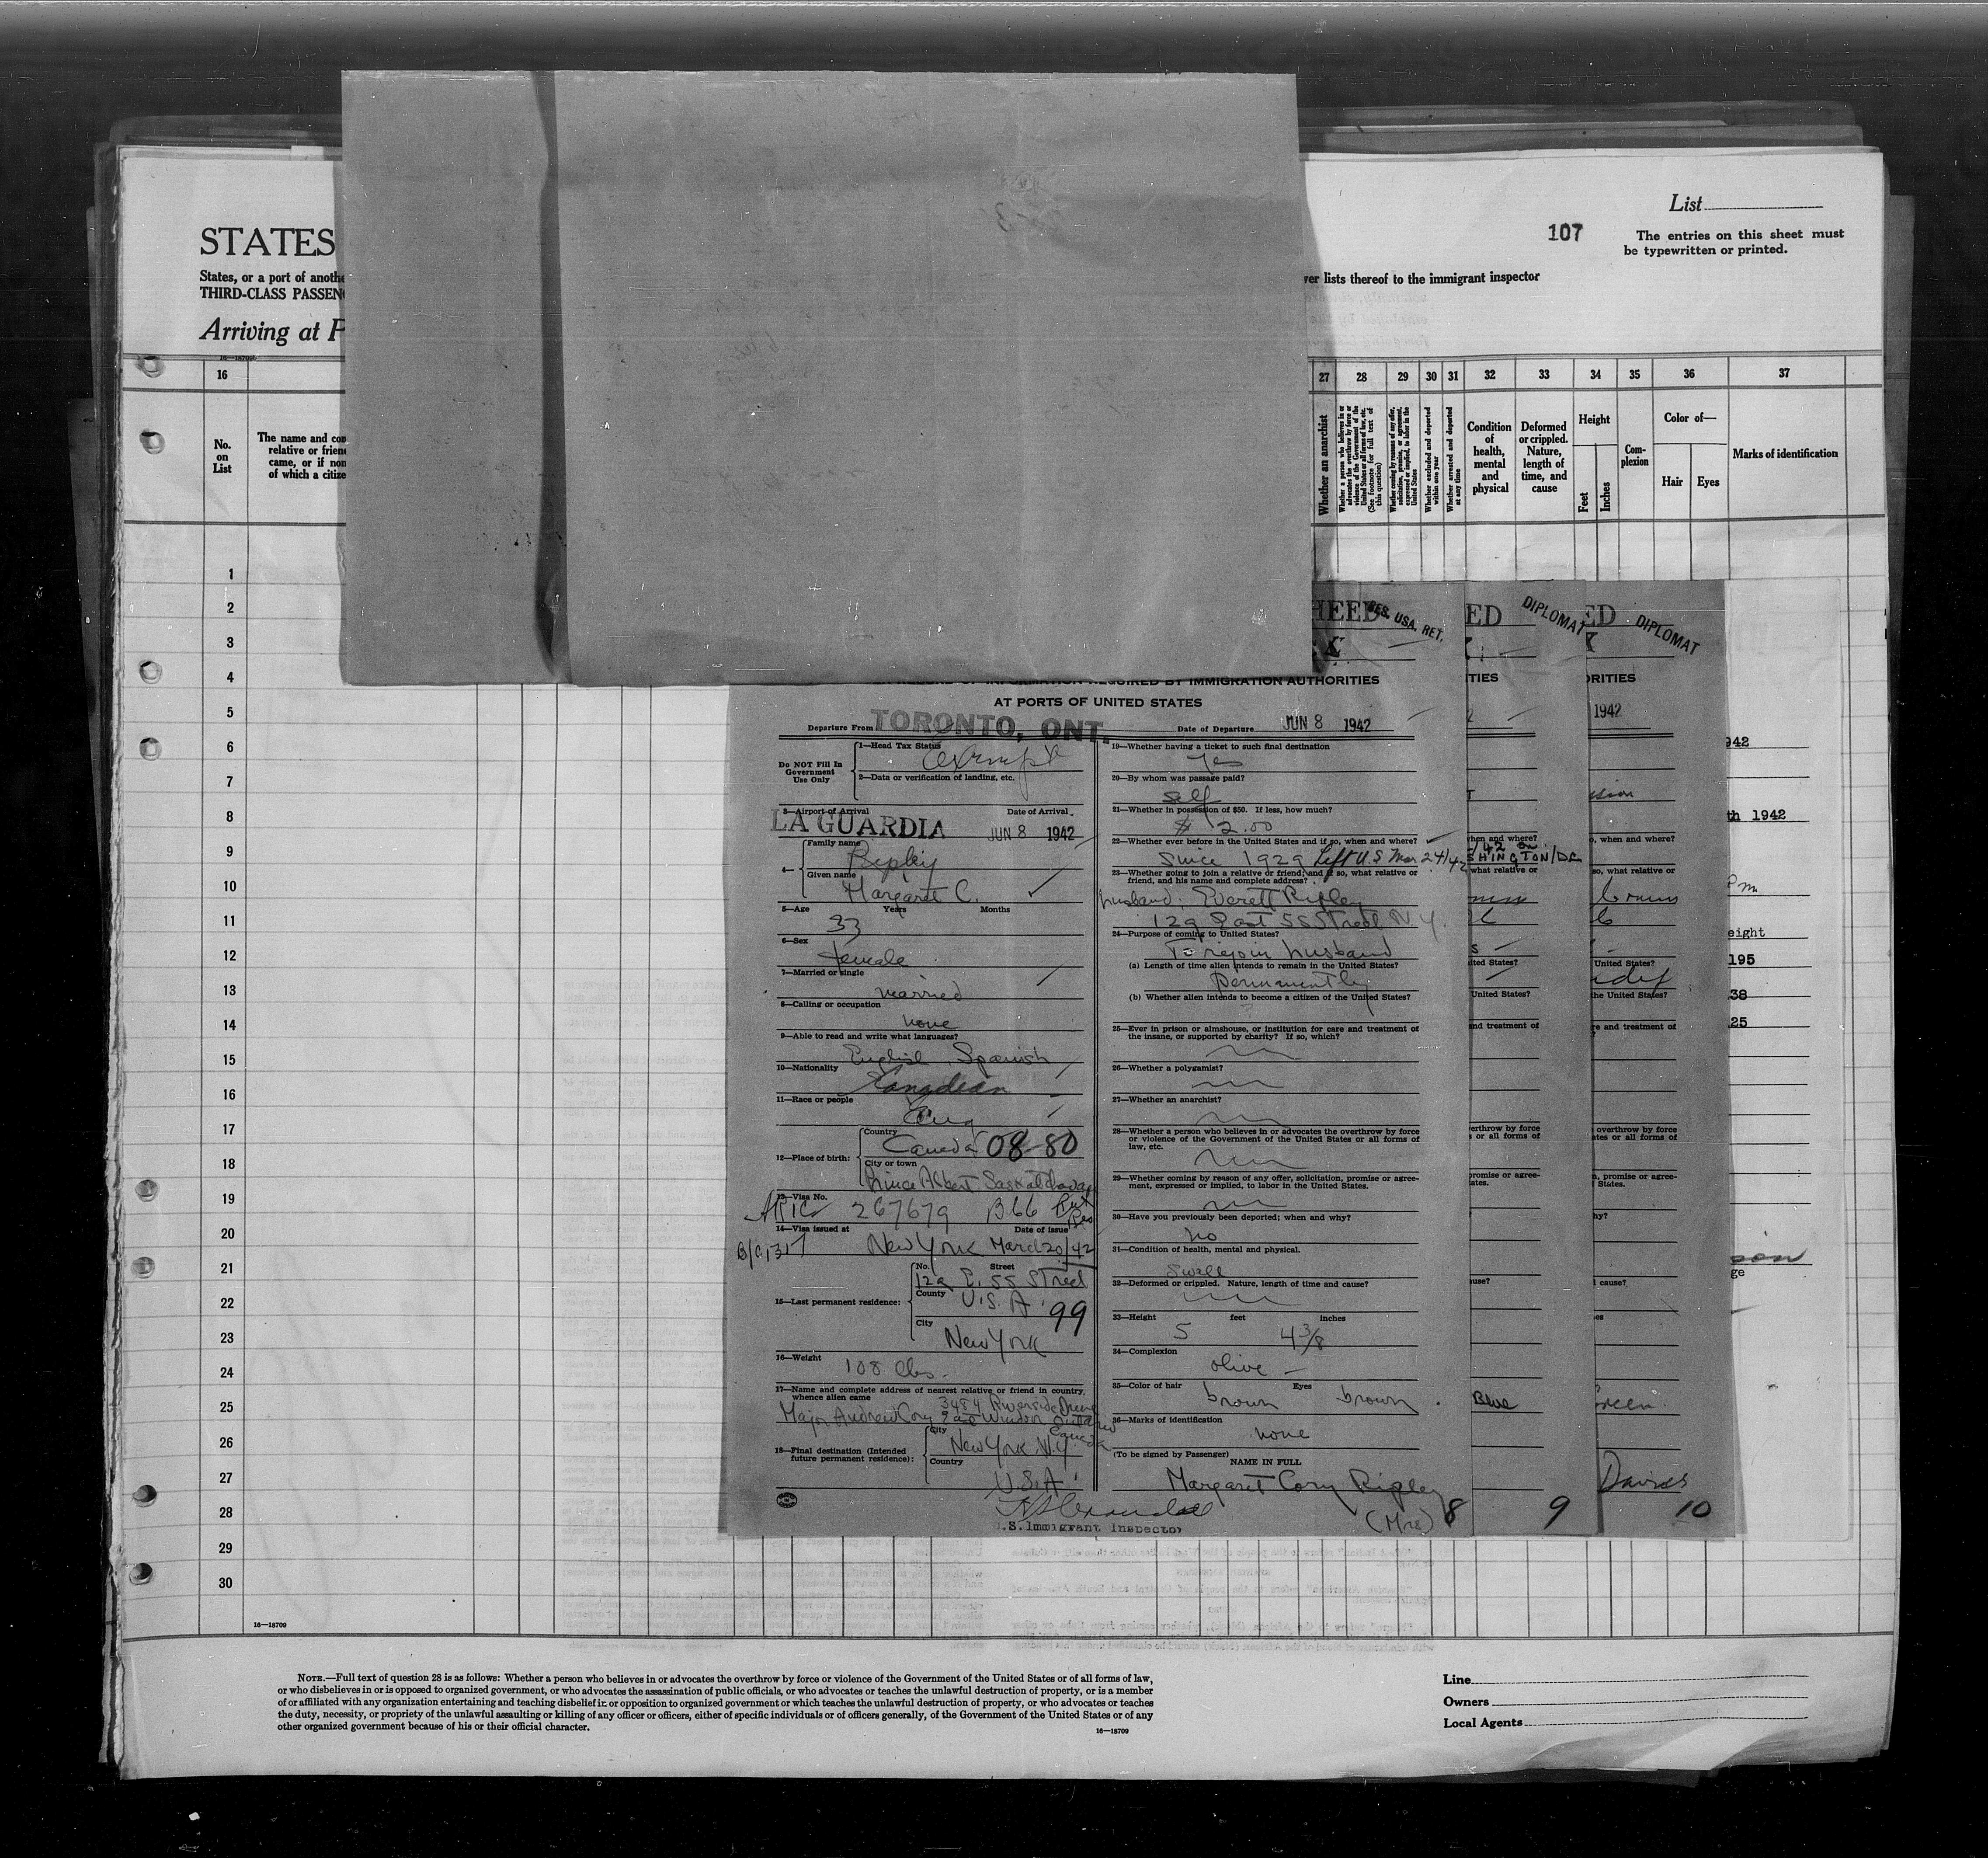 List
107
The entries on this sheet must
be typewritten or printed.
STATES
States, or a port of anothe
THIRD-CLASS PASSEN
ver lists thereof to the immigrant inspector
Arriving at P
16—18709
16
27 28 29 30 31 32 33 34 35 36 37
No.
on
List
The name and com
relative or frien
came, or if non
of which a citize
Whether an anarchist
Whether a person who believes in or
advocates the overthrow by force or
violence of the Government of the
United States or all forms of law, etc.
(See footnote for full text of
this question)
Whether coming by reasons of any offer,
solicitation, promise, or agreement,
expressed or implied, to labor in the
United States
Whether excluded and deported
within one year
Whether arrested and deported
at any time
Condition
of
health,
mental
and
physical
Deformed
or crippled.
Nature,
length of
time, and
cause
Height
Feet
Inches
Com-
plexion
Color of—
Hair
Eyes
Marks of identification
1
2
3
4
5
6
7
8
9
10
11
12
13
14
15
16
17
18
19
20
21
22
23
24
25
26
27
28
29
30
16—18709
HEED
RES. USA, RET.
ED
DIPLOMAT
ED
DIPLOMAT
INFORMATION REQUIRED BY IMMIGRATION AUTHORITIES
AT PORTS OF UNITED STATES
Departure From TORONTO, ONT.
Date of Departure JUN 8 1942
Do NOT Fill In
Government
Use Only
1—Head Tax Status
Exempt
2—Data or verification of landing, etc.
3—Airport of Arrival Date of Arrival
LA GUARDIA JUN 8 1942
4—
Family name
Ripley
Given name
Margaret C.
5—Age Years Months
33
6—Sex
female
7—Married or single
married
8—Calling or occupation
none
9—Able to read and write what languages?
English Spanish
10—Nationality
Canadian
11—Race or people
Eng
12—Place of birth:
Country
Canada 08-80
City or town
Prince Albert Saskatchewan
13—Visa No.
267679 B66
14—Visa issued at Date of issue
New York March 20/42
15—Last permanent residence:
No. Street
129 E. 55 Street
County
U.S.A. 99
City
New York
16—Weight
108 lbs.
17—Name and complete address of nearest relative or friend in country,
whence alien came
3484 Riverside Drive
Major Andrew Cory East Windsor Ontario
Canada
18—Final destination (Intended
future permanent residence):
City
New York N.Y.
Country
U.S.A.
U.S. Immigrant Inspector
19—Whether having a ticket to such final destination
Yes
20—By whom was passage paid?
self
21—Whether in possession of $50. If less, how much?
$ 2.00
22—Whether ever before in the United States and if so, when and where?
Since 1929 Left U.S Mar 24/42
23—Whether going to join a relative or friend; and if so, what relative or
friend, and his name and complete address?
husband: Everett Ripley
129 East 55 Street N.Y.
24—Purpose of coming to United States?
To rejoin husband
(a) Length of time alien intends to remain in the United States?
Permanently
(b) Whether alien intends to become a citizen of the United States?
25—Ever in prison or almshouse, or institution for care and treatment of
the insane, or supported by charity? If so, which?
26—Whether a polygamist?
27—Whether an anarchist?
28—Whether a person who believes in or advocates the overthrow by force
or violence of the Government of the United States or all forms of
law, etc.
29—Whether coming by reason of any offer, solicitation, promise or agree-
ment, expressed or implied, to labor in the United States.
30—Have you previously been deported; when and why?
no
31—Condition of health, mental and physical.
32—Deformed or crippled. Nature, length of time and cause?
33—Height feet inches
5 4 3/8
34—Complexion
olive
35—Color of hair Eyes
brown brown
36—Marks of identification
none
(To be signed by Passenger)
NAME IN FULL
Margaret Cory Ripley
(Mrs) 8
TIES
hen and where?
SHINGTON/DC
what relative or
ited States?
United States?
and treatment of
erthrow by force
s or all forms of
promise or agree-
ates.
use?
Blue
9
ORITIES
1942
o, when and where?
so, what relative or
United States?
the United States?
re and treatment of
overthrow by force
ates or all forms of
n, promise or agree-
States.
hy?
l cause?
es
Green
Davies
10
942
th 1942
eight
195
38
25
son
ge
NOTE.—Full text of question 28 is as follows: Whether a person who believes in or advocates the overthrow by force or violence of the Government of the United States or of all forms of law,
or who disbelieves in or is opposed to organized government, or who advocates the assassination of public officials, or who advocates or teaches the unlawful destruction of property, or is a member
of or affiliated with any organization entertaining and teaching disbelief in or opposition to organized government or which teaches the unlawful destruction of property, or who advocates or teaches
the duty, necessity, or propriety of the unlawful assaulting or killing of any officer or officers, either of specific individuals or of officers generally, of the Government of the United States or of any
other organized government because of his or their official character.
16—18709
Line
Owners
Local Agents